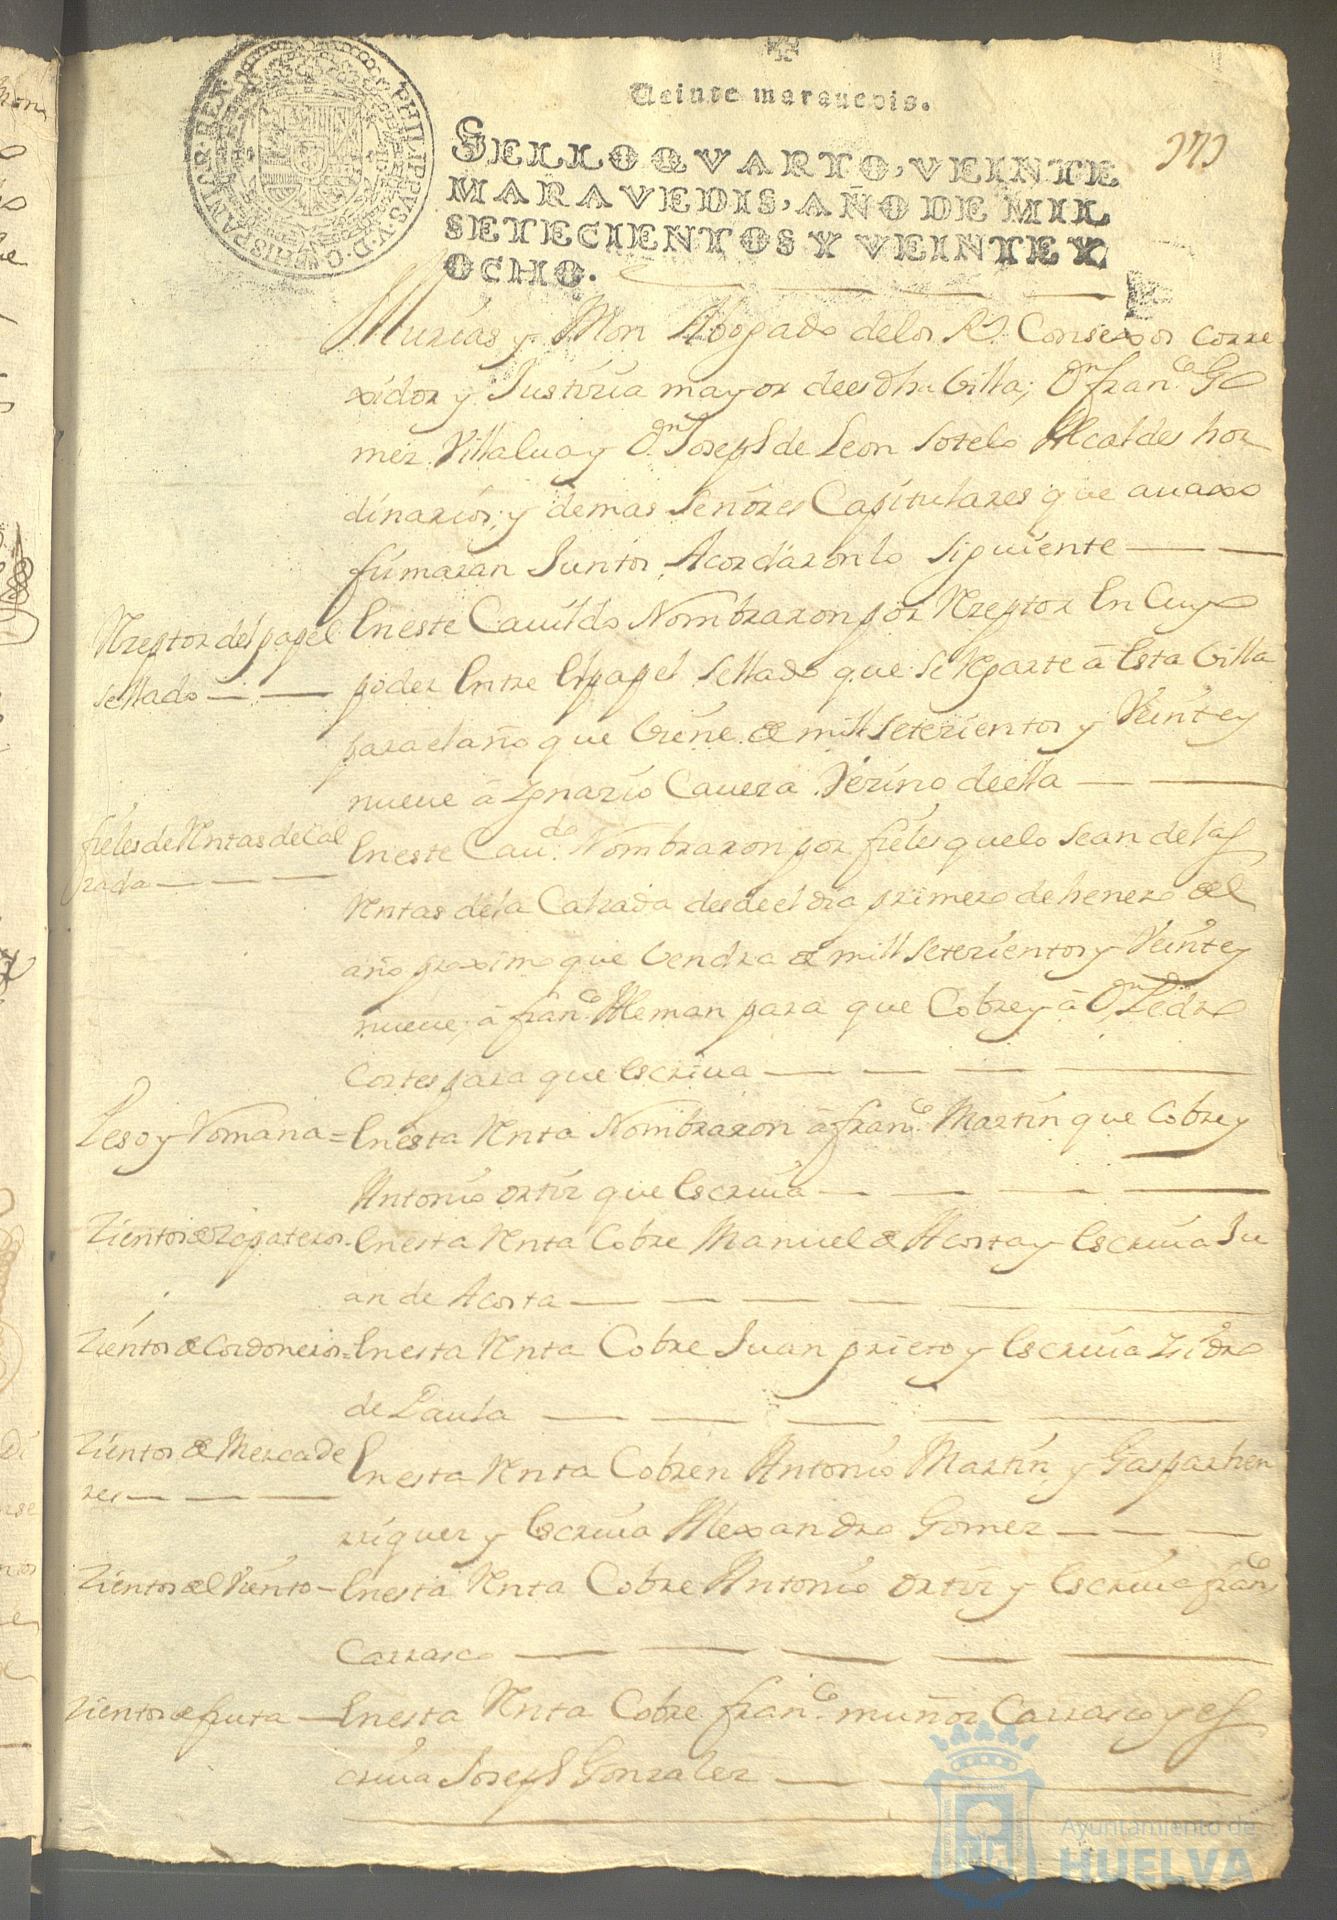 PHILIPPVS·V·D·G·HISPANIAR·REX
Veinte marauedis.
SELLO QVARTO, VEINTE
MARAVEDIS, AÑO DE MIL
SETECIENTOS Y VEINTE Y
OCHO.
373
Murias y Mon Abogado delos Rs. Consexos corre
xidor y Justizia mayor deesta dha Villa; Dn. franco. Go
mez Villalua y Dn. Joseph de Leon Sotelo Alcaldes hor
dinarios; y demas Señores Capitulares que auaxo
firmaran Juntos Acordaron lo siguiente
Rzeptor del papel
sellado
En este Cauildo Nombraron por Rzeptor En Cuyo
poder Entre El papel Sellado que se Reparte â Esta Villa
para el año que Viene de mill Setezientos y Veinte y
nueue â Ygnazio Cauera Vezino deella
fieles de Rentas de Cal
zada
En este Caudo. Nombraron por fieles que lo Sean de las
Rentas dela Calzada desde el dia primero de henero del
año proximo que Vendra de mill Setezientos y Veinte y
nueue; â franco. Aleman para que Cobre y â Dn. Pedro
Cortes para que Escriua
Peso y Romana =
En esta Renta Nombraron â franco. Martin que Cobre y
Antonio Ortiz que Escriua
Zientos de Zapateros
En esta Renta Cobre Manuel de Acosta y Escriua Ju
an de Acosta
Zientos de Cordoneros =
En esta Renta Cobre Juan prieto y Escriua Zidro
de Paula
Zientos de Mercade
res
En esta Renta Cobren Antonio Martin y Gaspar hen
rriquez y Escriua Alexandro Gomez
Zientos del Viento
En esta Renta Cobre Antonio Ortiz y Escriua franco
Carrasco
Zientos de fruta
En esta Renta Cobre franco. muñoz Carrasco y es
criua Joseph Gonzalez
Ayuntamiento de
HUELVA